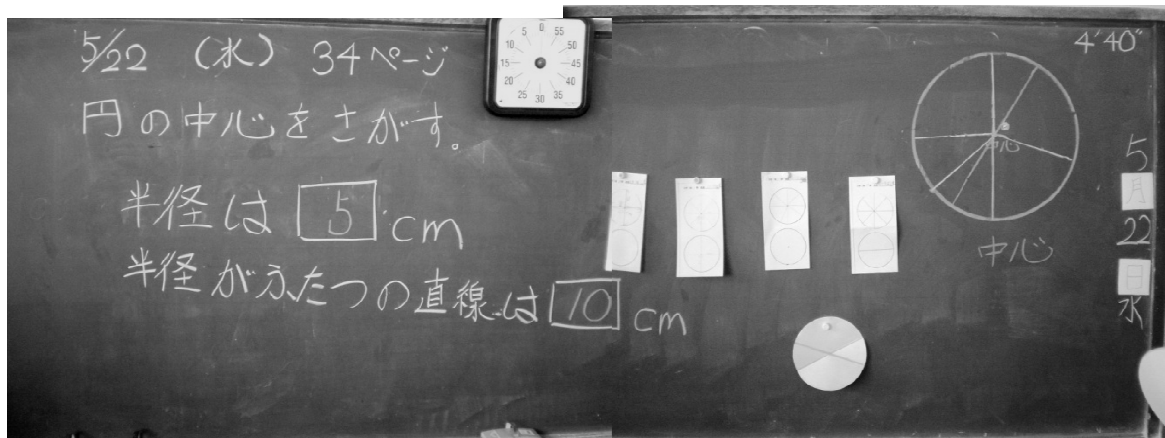 5/22 (水) 34ページ
円の中心をさがす。
半径は 5 cm
半径がふたつの直線は 10 cm
0
55
50
45
40
35
30
25
20
15
10
5
4'40"
中心
中心
5
月
22
日
水